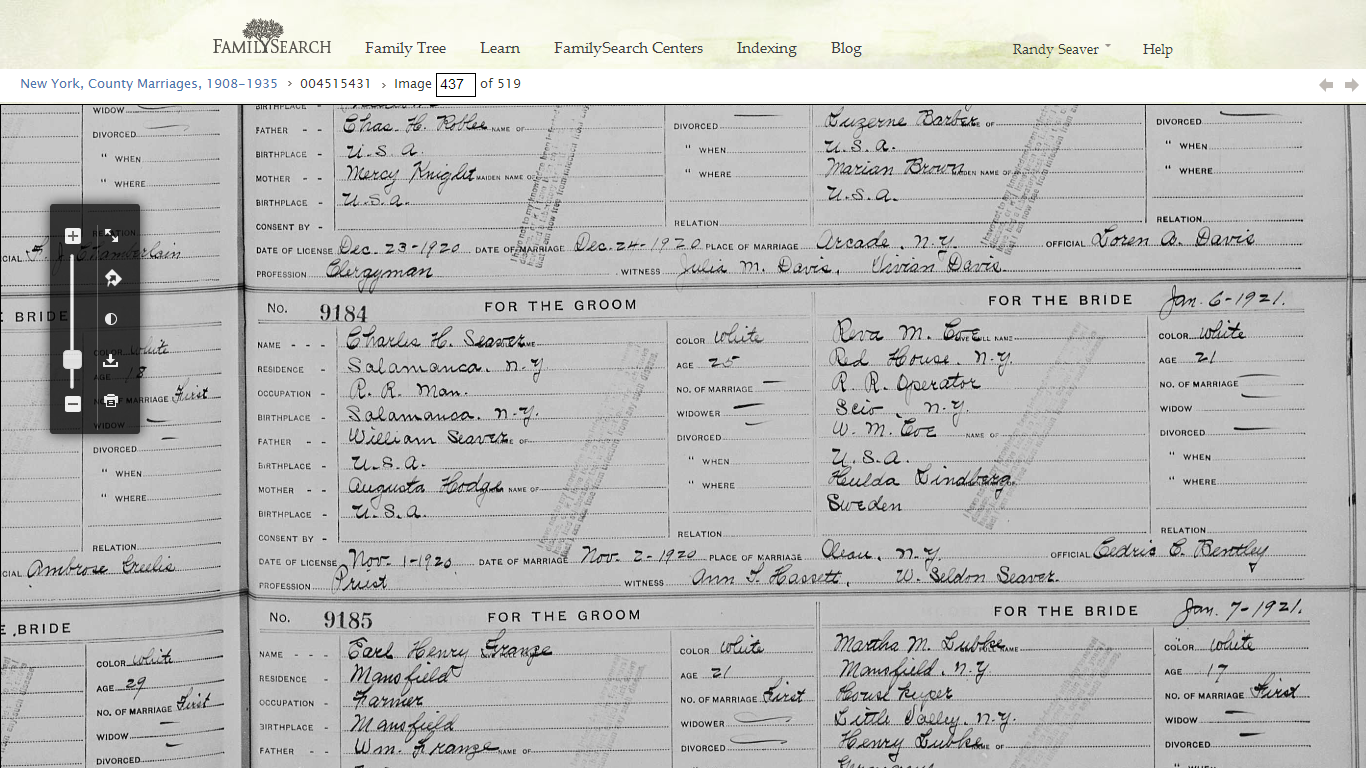 FAMILYSEARCH Family Tree Learn FamilySearch Centers Indexing Blog Randy Seaver Help
New York, County Marriages, 1908-1935 › 004515431 › Image 437 of 519
WIDOW
DIVORCED
" WHEN
" WHERE
RELATION
F. J. Chamberlain
BRIDE
COLOR White
AGE 18
NO. OF MARRIAGE First
WIDOW
DIVORCED
" WHEN
" WHERE
RELATION
CIAL Ambrose
E BRIDE
COLOR White
AGE 29
NO. OF MARRIAGE First
WIDOW
DIVORCED
BIRTHPLACE -
FATHER - - Chas. H. Roblee NAME OF DIVORCED Luzerne Barber NAME OF DIVORCED
BIRTHPLACE - U.S.A. " WHEN U.S.A. " WHEN
MOTHER - - Mercy Knight MAIDEN NAME OF " WHERE Marian Brown MAIDEN NAME OF " WHERE
BIRTHPLACE - U.S.A. U.S.A.
CONSENT BY - RELATION RELATION
DATE OF LICENSE Dec. 23-1920 DATE OF MARRIAGE Dec. 24-1920 PLACE OF MARRIAGE Arcade, N.Y. OFFICIAL Loren A. Davis
PROFESSION Clergyman WITNESS Julia M. Davis, Vivian Davis.
No. 9184 FOR THE GROOM FOR THE BRIDE Jan. 6-1921.
NAME - - - Charles H. Seaver COLOR White Reva M. Coe FULL NAME COLOR White
RESIDENCE - Salamanca, N.Y. AGE 25 Red House, N.Y. AGE 21
OCCUPATION - R. R. Man. NO. OF MARRIAGE R. R. Operator NO. OF MARRIAGE
BIRTHPLACE - Salamanca, N.Y. WIDOWER Scio, N.Y. WIDOW
FATHER - - William Seaver NAME OF DIVORCED W. M. Coe NAME OF DIVORCED
BIRTHPLACE - U.S.A. " WHEN U.S.A. " WHEN
MOTHER - - Augusta Hodge MAIDEN NAME OF " WHERE Hulda Lindberg " WHERE
BIRTHPLACE - U.S.A. Sweden
CONSENT BY - RELATION RELATION
DATE OF LICENSE Nov. 1-1920 DATE OF MARRIAGE Nov. 2-1920 PLACE OF MARRIAGE Olean, N.Y. OFFICIAL Cedric C. Bentley
PROFESSION Priest WITNESS Ann T. Hassett, W. Seldon Seaver.
No. 9185 FOR THE GROOM FOR THE BRIDE Jan. 7-1921.
NAME - - - Earl Henry Grange COLOR White Martha M. Lubke NAME COLOR White
RESIDENCE - Mansfield AGE 21 Mansfield, N.Y AGE 17
OCCUPATION - Farmer NO. OF MARRIAGE First House Keeper NO. OF MARRIAGE First
BIRTHPLACE - Mansfield WIDOWER Little Valley, N.Y. WIDOW
FATHER - - Wm. Grange NAME OF DIVORCED Henry Lubke NAME OF DIVORCED